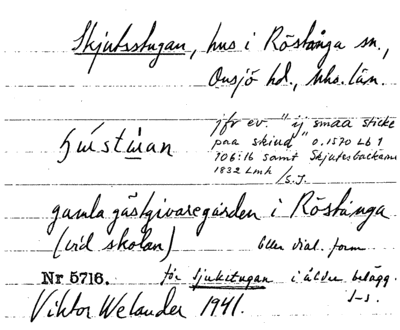 Skjutsstugan, hus i Röstånga sn.,
Onsjö hd., Mhs. län.
jfr ev. "ij smaa sticke
paa skiud" o. 1570 Lb 1
706:16 samt Skjutsbackarne
1832 Lmh
/S.I.
gamla gästgivaregården i Röstånga
(vid skolan) eller dial. form
Nr 5716. för sjukstugan i äldre belägg.
Viktor Welander 1941.